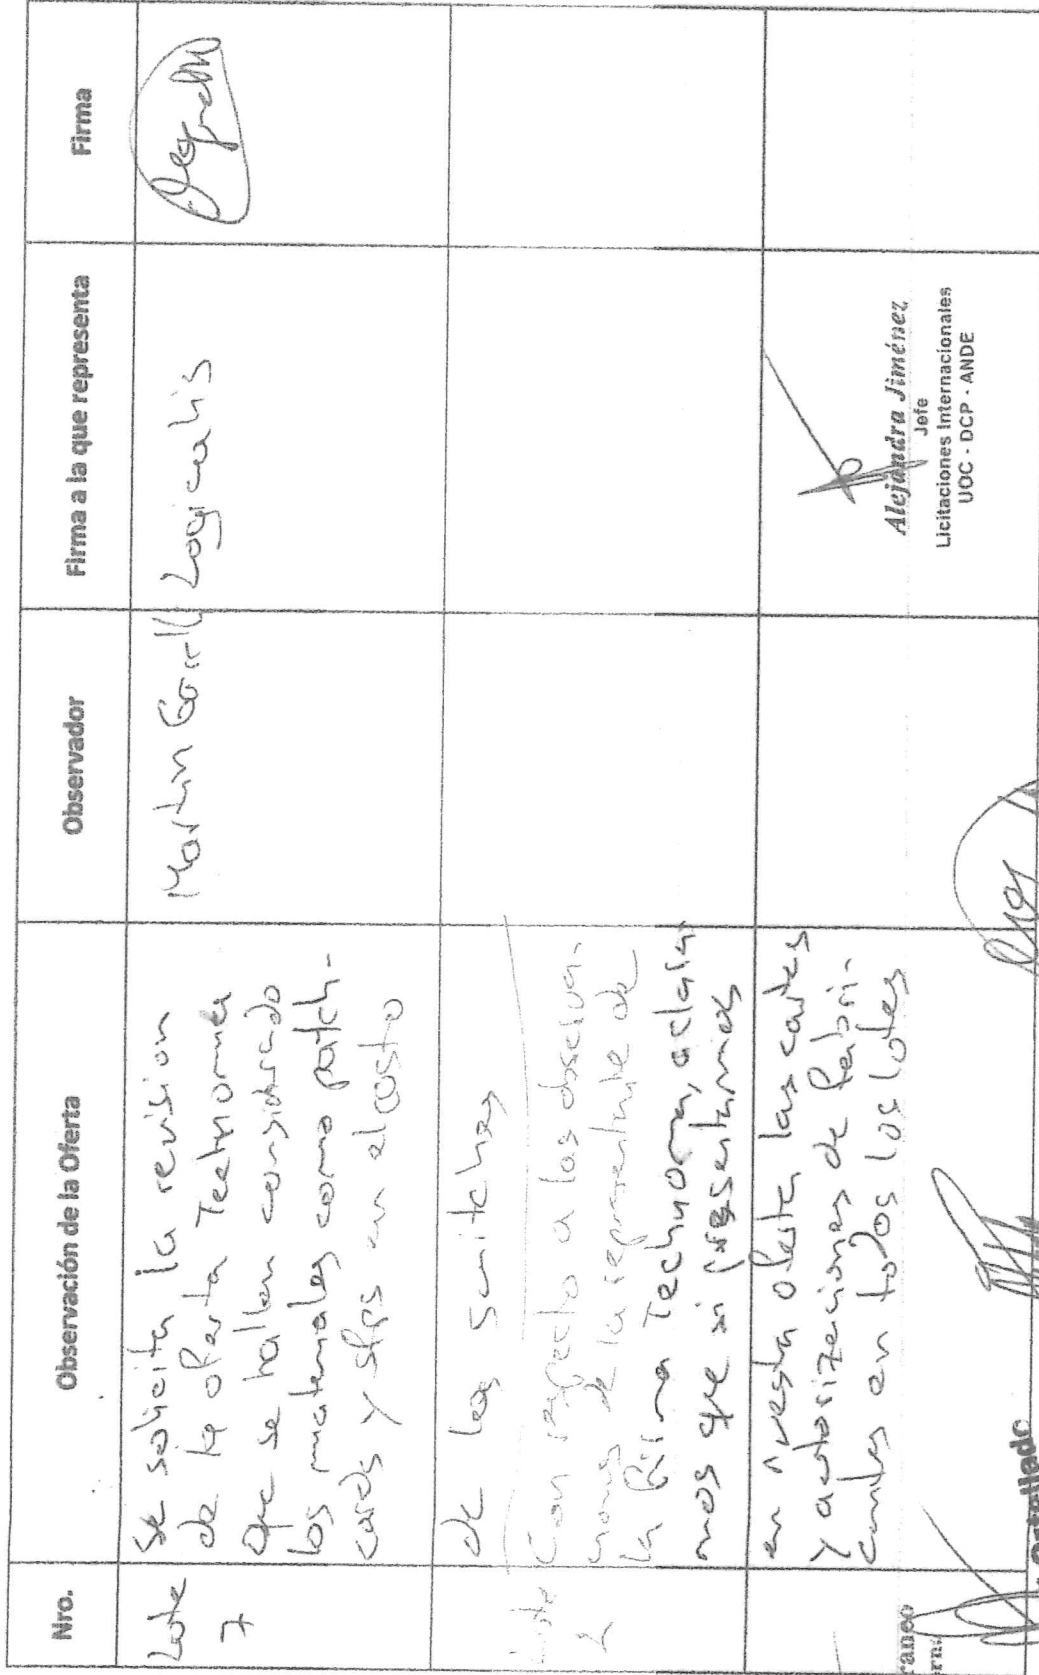 Nro.
Observación de la Oferta
Observador
Firma a la que representa
Firma
Lote
7
Se solicita la revision
de la oferta Technoma
que se hallan considrado
los materiales como patch-
cords y sfps en el costo
Martin
Logicalis
de los switches
Lote
Con respecto a las observa-
de la representante de
la firma Technoma, aclara-
mos que si presentamos
en nuestra oferta las cartas
y autorizaciones de fabri-
cantes en todos los lotes
Alejandra Jiménez
Jefe
Licitaciones Internacionales
UOC - DCP - ANDE